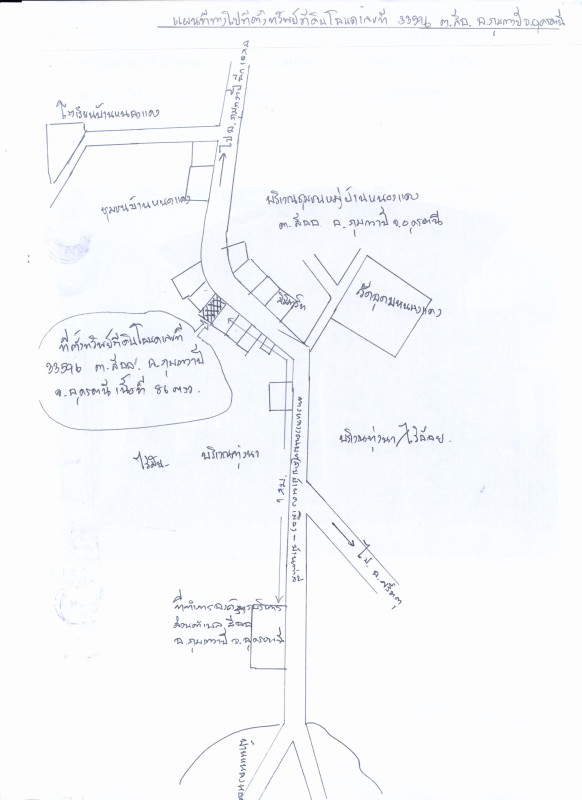 แผนที่ทางไปที่ตั้งทรัพย์ที่ดินโฉนดเลขที่ 33596 ต.สีออ อ.กุมภวาปี จ.อุดรธานี
โรงเรียนบ้านหนองแดง
ไป อ.กุมภวาปี
ชุมชนบ้านหนองแดง
บริเวณชุมชนหมู่บ้านหนองแดง
ต.สีออ อ.กุมภวาปี จ.อุดรธานี
วัดอุดมหนองแดง
ที่ตั้งทรัพย์ที่ดินโฉนดเลขที่
33596 ต.สีออ อ.กุมภวาปี
จ.อุดรธานี เนื้อที่ 86 ตรว.
ไร่มัน
บริเวณทุ่งนา
บริเวณทุ่งนา/ไร่อ้อย
1 กม.
ไป
ที่ทำการองค์การบริหาร
ส่วนตำบลสีออ
อ.กุมภวาปี จ.อุดรธานี